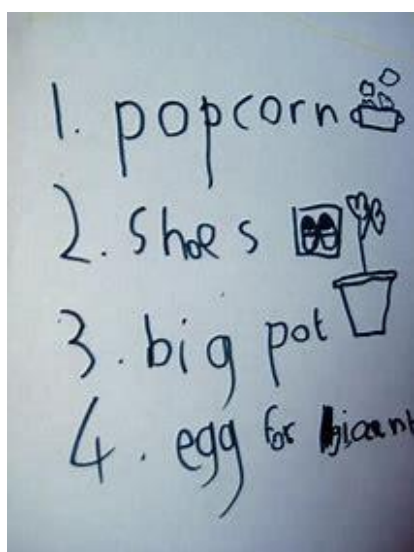 1. popcorn
2. shoes
3. big pot
4. egg for